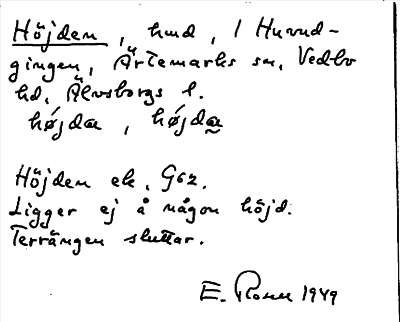 Höjden, hmd, / Huvud-
gingen, Ärtemarks sn, Vedbo
hd, Älvsborgs l.
højda, højda
Höjden ek. G62.
Ligger ej å någon höjd.
Terrängen sluttar.
E. Rosen 1949